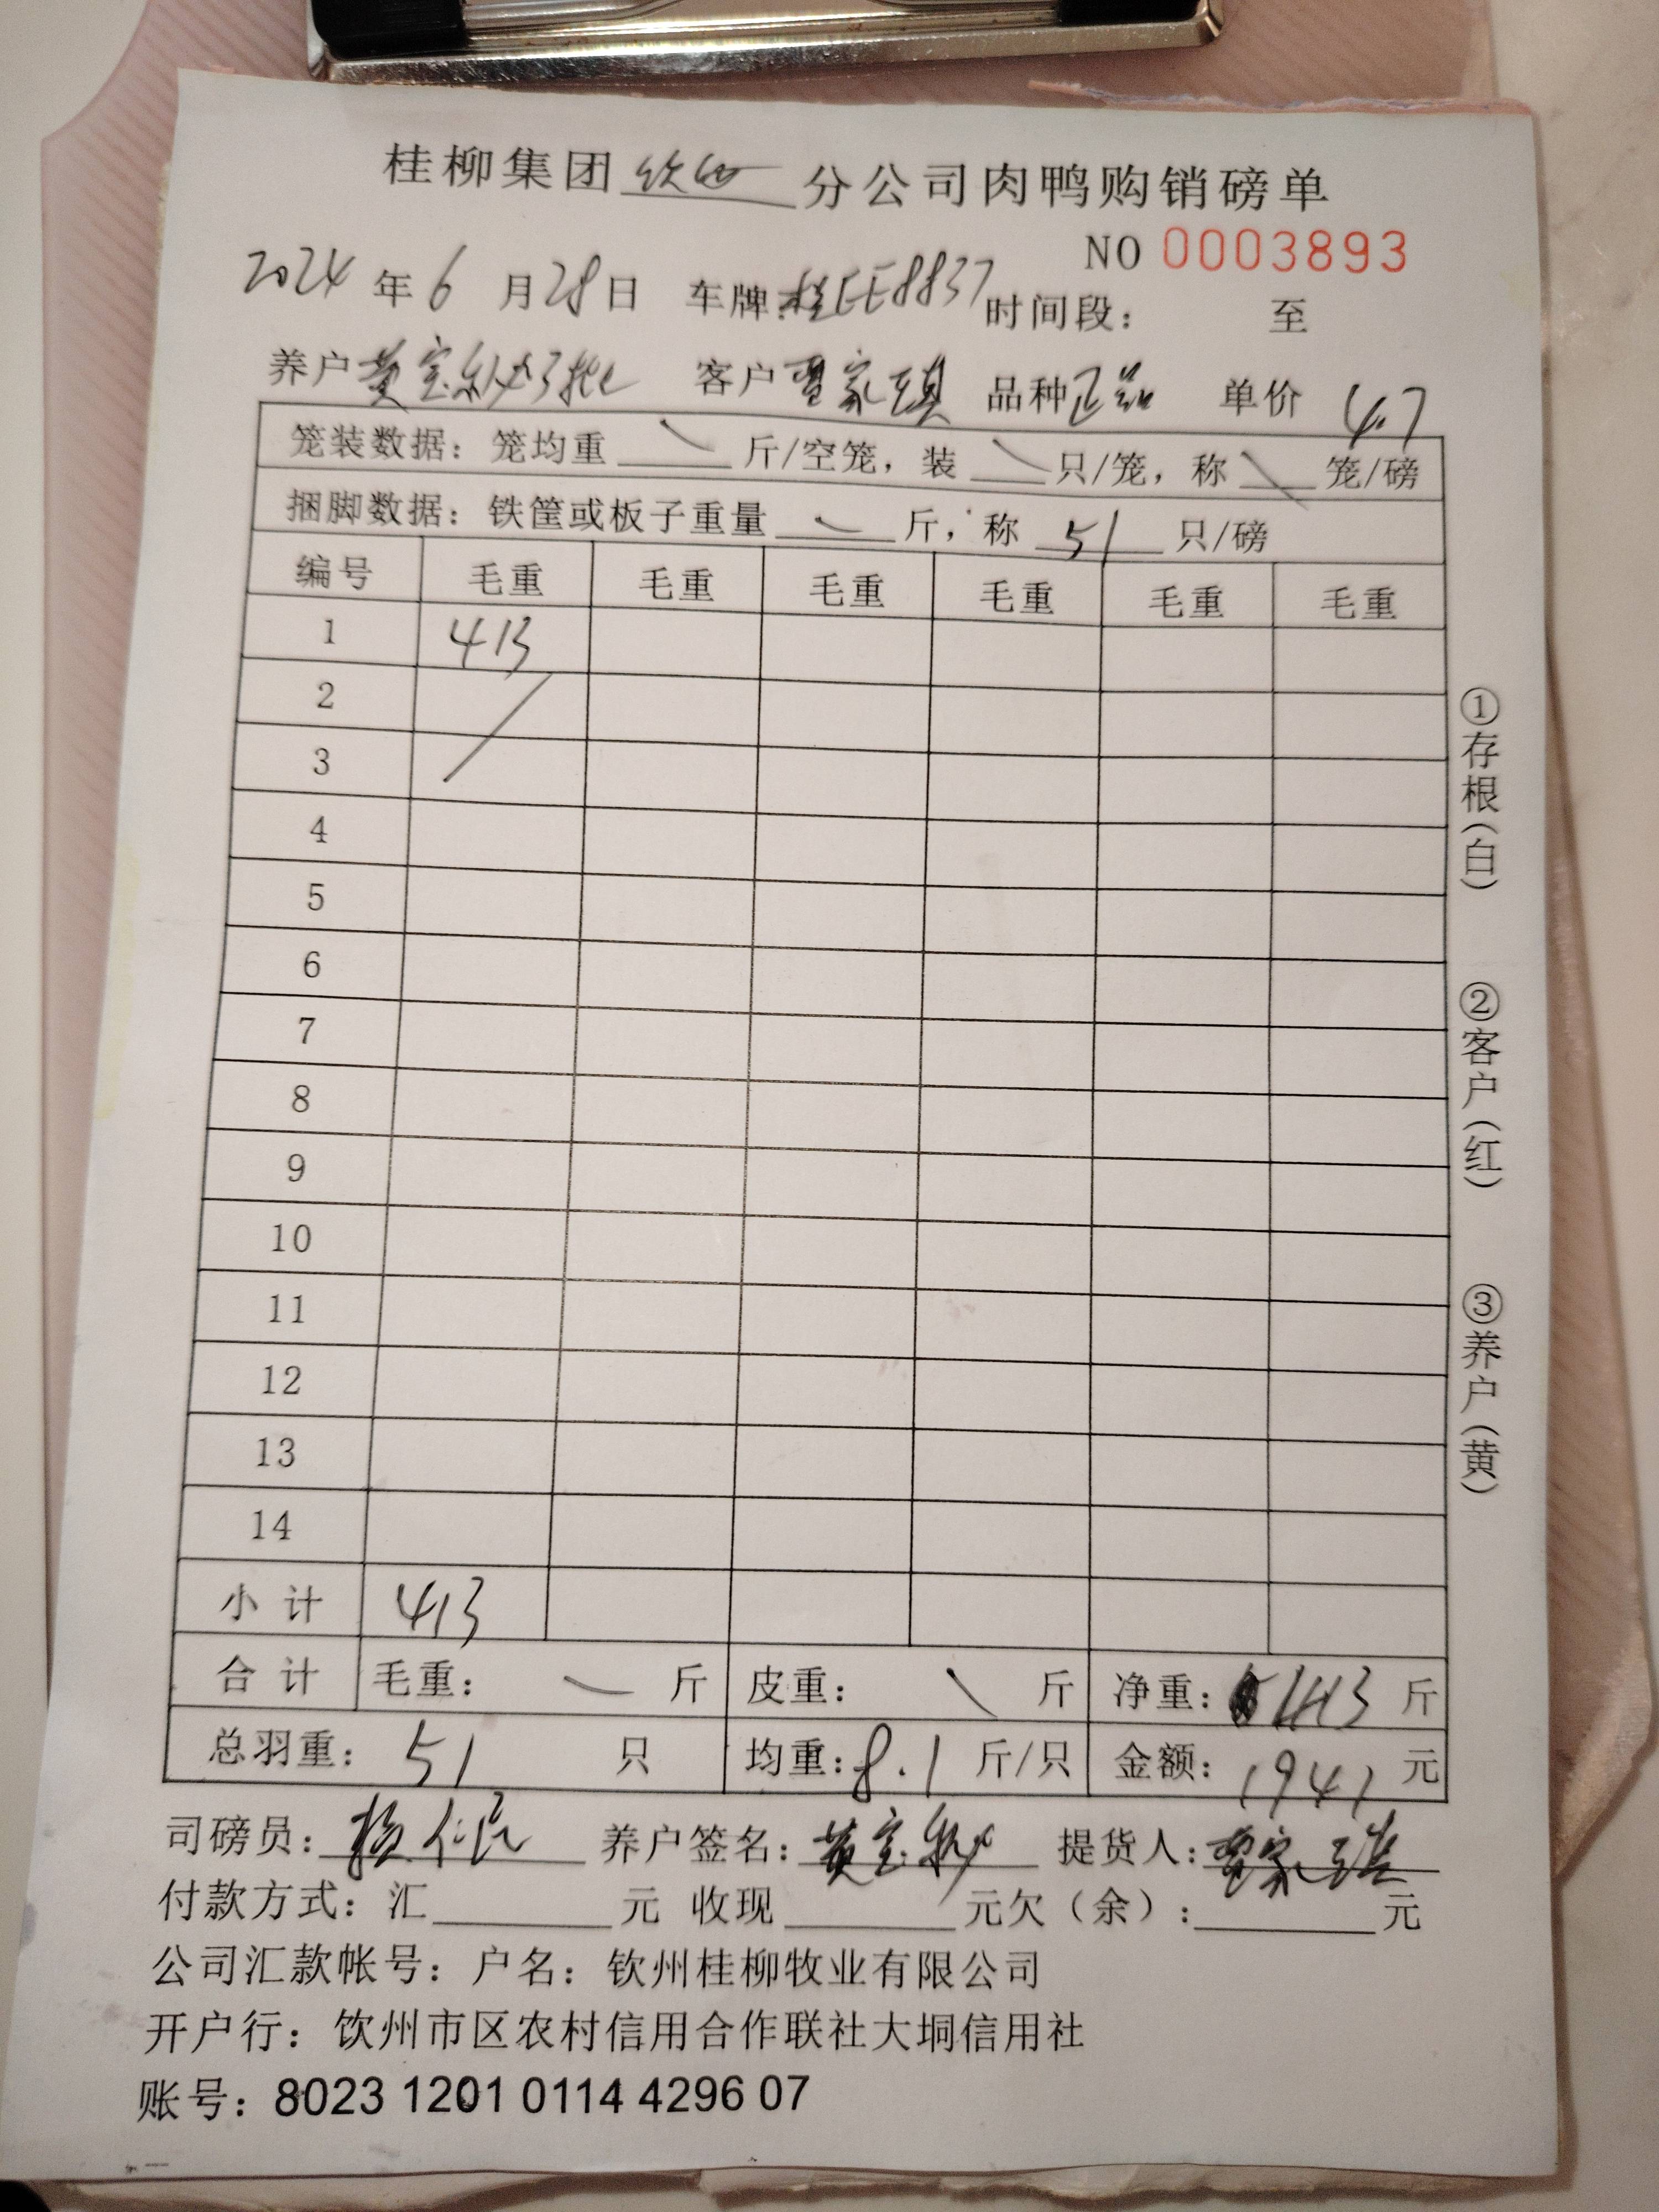 桂柳集团 钦州 分公司肉鸭购销磅单
NO 0003893
2024 年 6 月 28 日 车牌:桂EE8837 时间段: 至
养户 黄宝 批 客户 家 品种 正品 单价 4.7
笼装数据:笼均重 斤/空笼,装 只/笼,称 笼/磅
捆脚数据:铁筐或板子重量 斤,称 51 只/磅
编号 毛重 毛重 毛重 毛重 毛重 毛重
1 413
2
3
4
5
6
7
8
9
10
11
12
13
14
小计 413
合计 毛重: 斤 皮重: 斤 净重: 413 斤
总羽重: 51 只 均重: 8.1 斤/只 金额: 1941 元
司磅员: 养户签名: 黄宝 提货人: 家
付款方式:汇 元 收现 元欠(余): 元
公司汇款帐号:户名:钦州桂柳牧业有限公司
开户行:饮州市区农村信用合作联社大垌信用社
账号:8023 1201 0114 4296 07
①存根(白)
②客户(红)
③养户(黄)